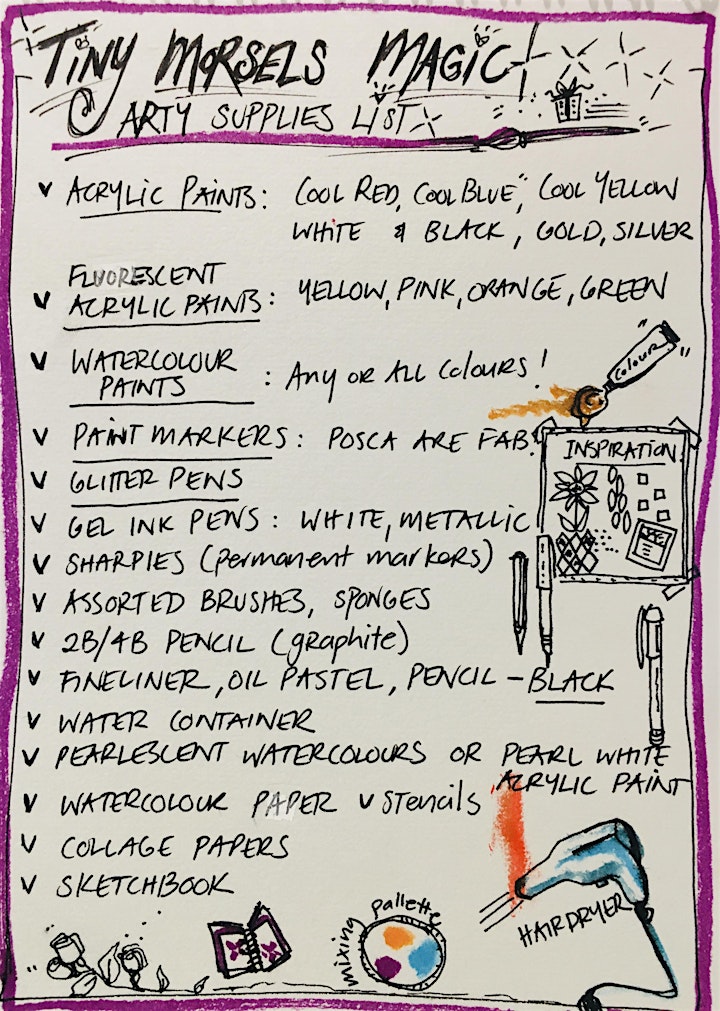 TINY MORSELS MAGIC!
ARTY SUPPLIES LIST
v ACRYLIC PAINTS: COOL RED, COOL BLUE, COOL YELLOW
WHITE & BLACK, GOLD, SILVER
FLUORESCENT
v ACRYLIC PAINTS: YELLOW, PINK, ORANGE, GREEN
v WATERCOLOUR
PAINTS : ANY OR ALL COLOURS!
"Colour"
v PAINT MARKERS: POSCA ARE FAB!
INSPIRATION
v GLITTER PENS
v GEL INK PENS: WHITE, METALLIC
v SHARPIES (permanent markers)
v ASSORTED BRUSHES, SPONGES
v 2B/4B PENCIL (graphite)
v FINELINER, OIL PASTEL, PENCIL - BLACK
v WATER CONTAINER
v PEARLESCENT WATERCOLOURS OR PEARL WHITE
ACRYLIC PAINT
v WATERCOLOUR PAPER v Stencils
v COLLAGE PAPERS
v SKETCHBOOK
HAIRDRYER
mixing pallette